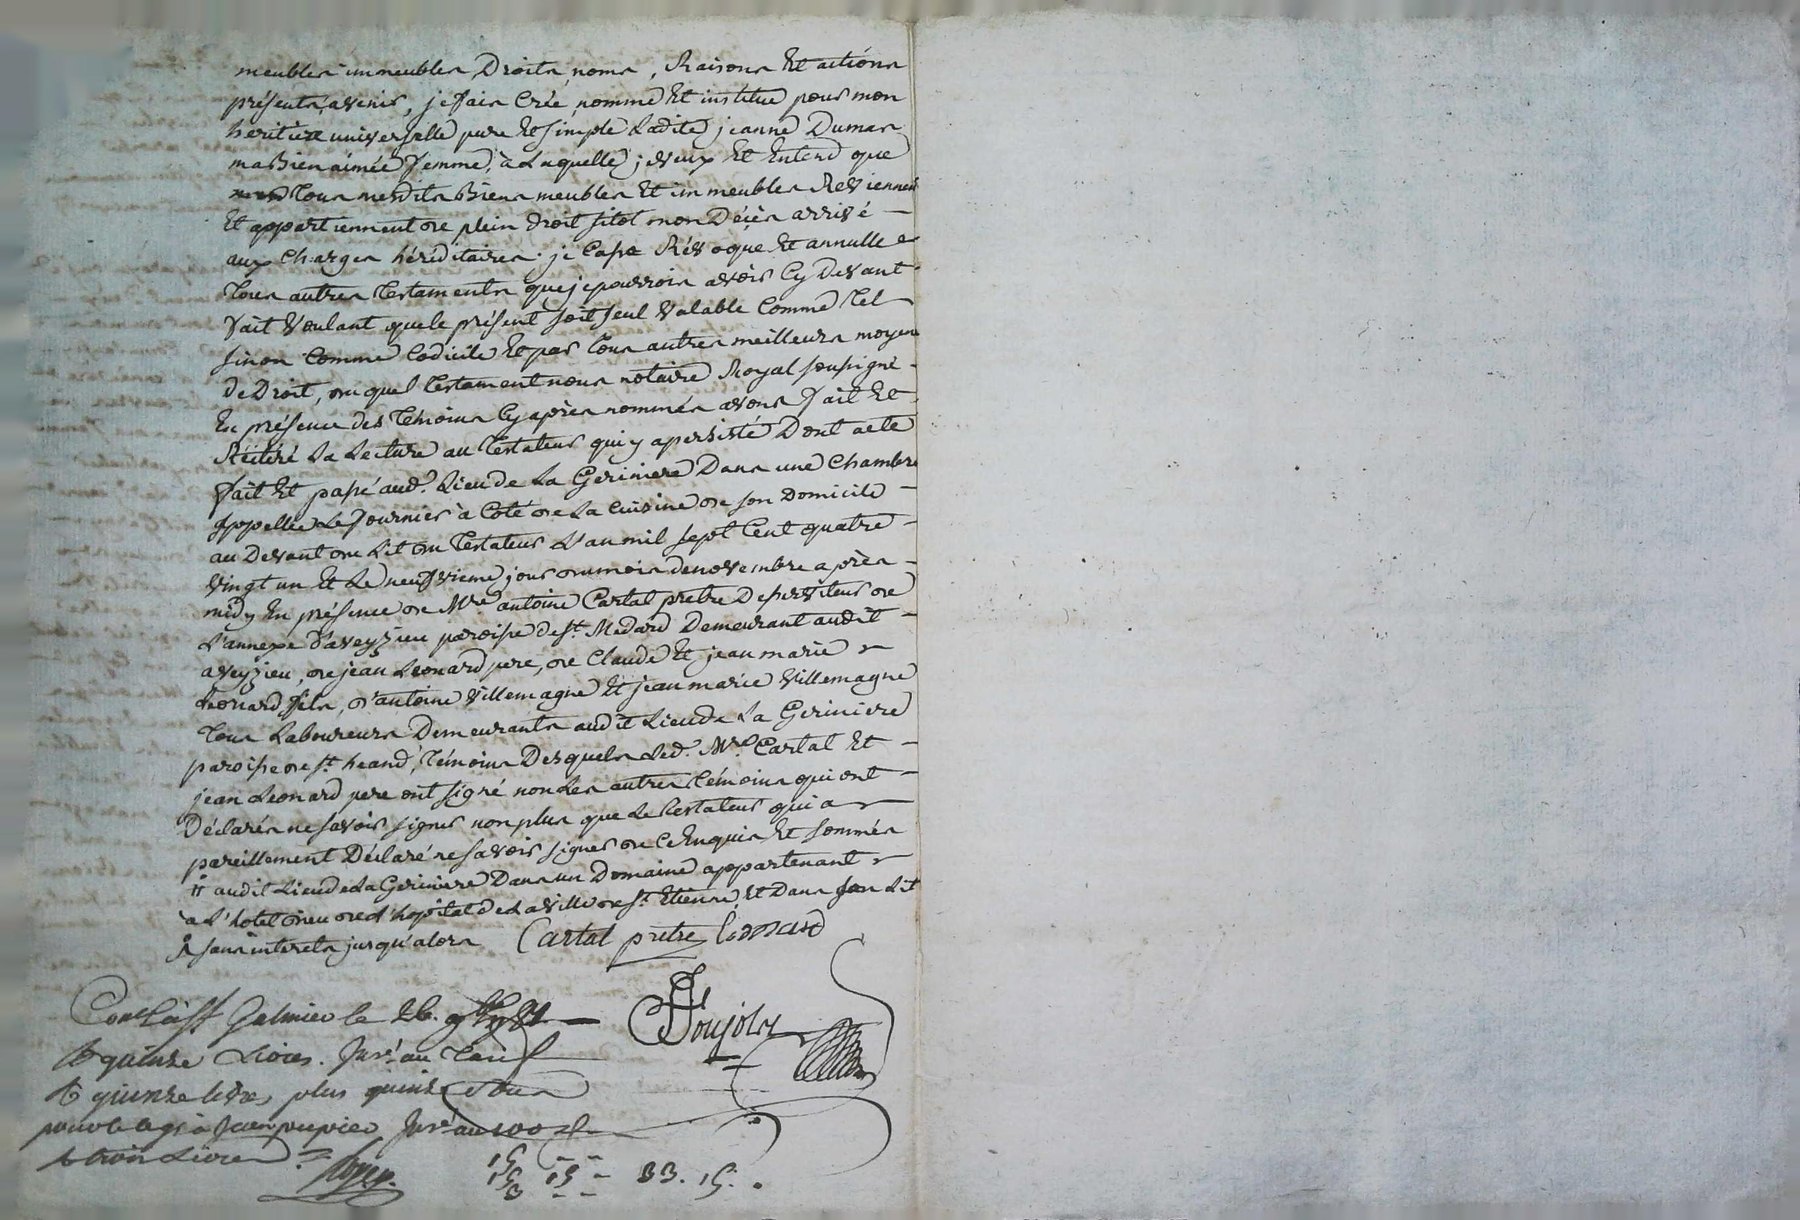 meubles immeubles, Droits, noms, Raisons Et actions
présents, avenir, je fais Créé nommé Et institue pour mon
héritiere universelle pure Et simple Ladite jeanne Dumas
ma Bien aimée femme, à Laquelle je veux Et Entend que
tous mesdits Biens meubles Et immeubles Reviennent
Et appartiennent de plein droit sitot mon Décès arrivé
aux Charges héréditaires. je Casse Révoque Et annulle
tous autres testaments que je pourrois avoir Cy Devant
fait Voulant que le présent soit seul Valable Comme tel
sinon Comme Codicile Et par tous autres meilleurs moyens
de Droit, du quel testament nous notaire Royal soussigné
En présence des temoins Cy après nommés avons fait Et
Réitéré La Lecture au testateur qui y a persisté Dont acte
fait Et passé aud.t Lieu de La Geriniere Dans une Chambre
appellée Le fournier à Coté de La Cuisine de son Domicile
au Devant du Lit du testateur L'an mil sept Cent quatre
vingt un Et Le neufvieme jour du mois de novembre après
midy En présence de M.re antoine Cartal pretre Desserviteur de
L'annexe d'aveyzieu paroisse de s.t Medard Demeurant audit
aveyzieu, de jean Leonard pere, de Claude Et jean marie
Leonard fils, d'antoine Villemagne Et jean marie Villemagne
tous Laboureurs Demeurants audit Lieu de La Geriniere
paroisse de s.t heand, témoins Desquels Led.t M.re Cartal Et
jean Leonard pere ont signé non Les autres témoins qui ont
Déclarés ne savoir signer non plus que Le testateur qui a
pareillement Déclaré ne savoir signer de Ce Enquis Et sommés
audit Lieu de La Geriniere Dans un Domaine appartenant
à L'hotel dieu de L'hopital de La ville de s.t Etienne, Et Dans son Lit
sans interets jusqu'alors Cartal pretre Leonard
Con.lé à s.t Galmier le 26. 9bre 1781
R quinze Livres. sur.t au tarif
R quinze livres plus quinze sous
pour le legs à Jean
R trois Livres
15 15 33. 15.
15
3